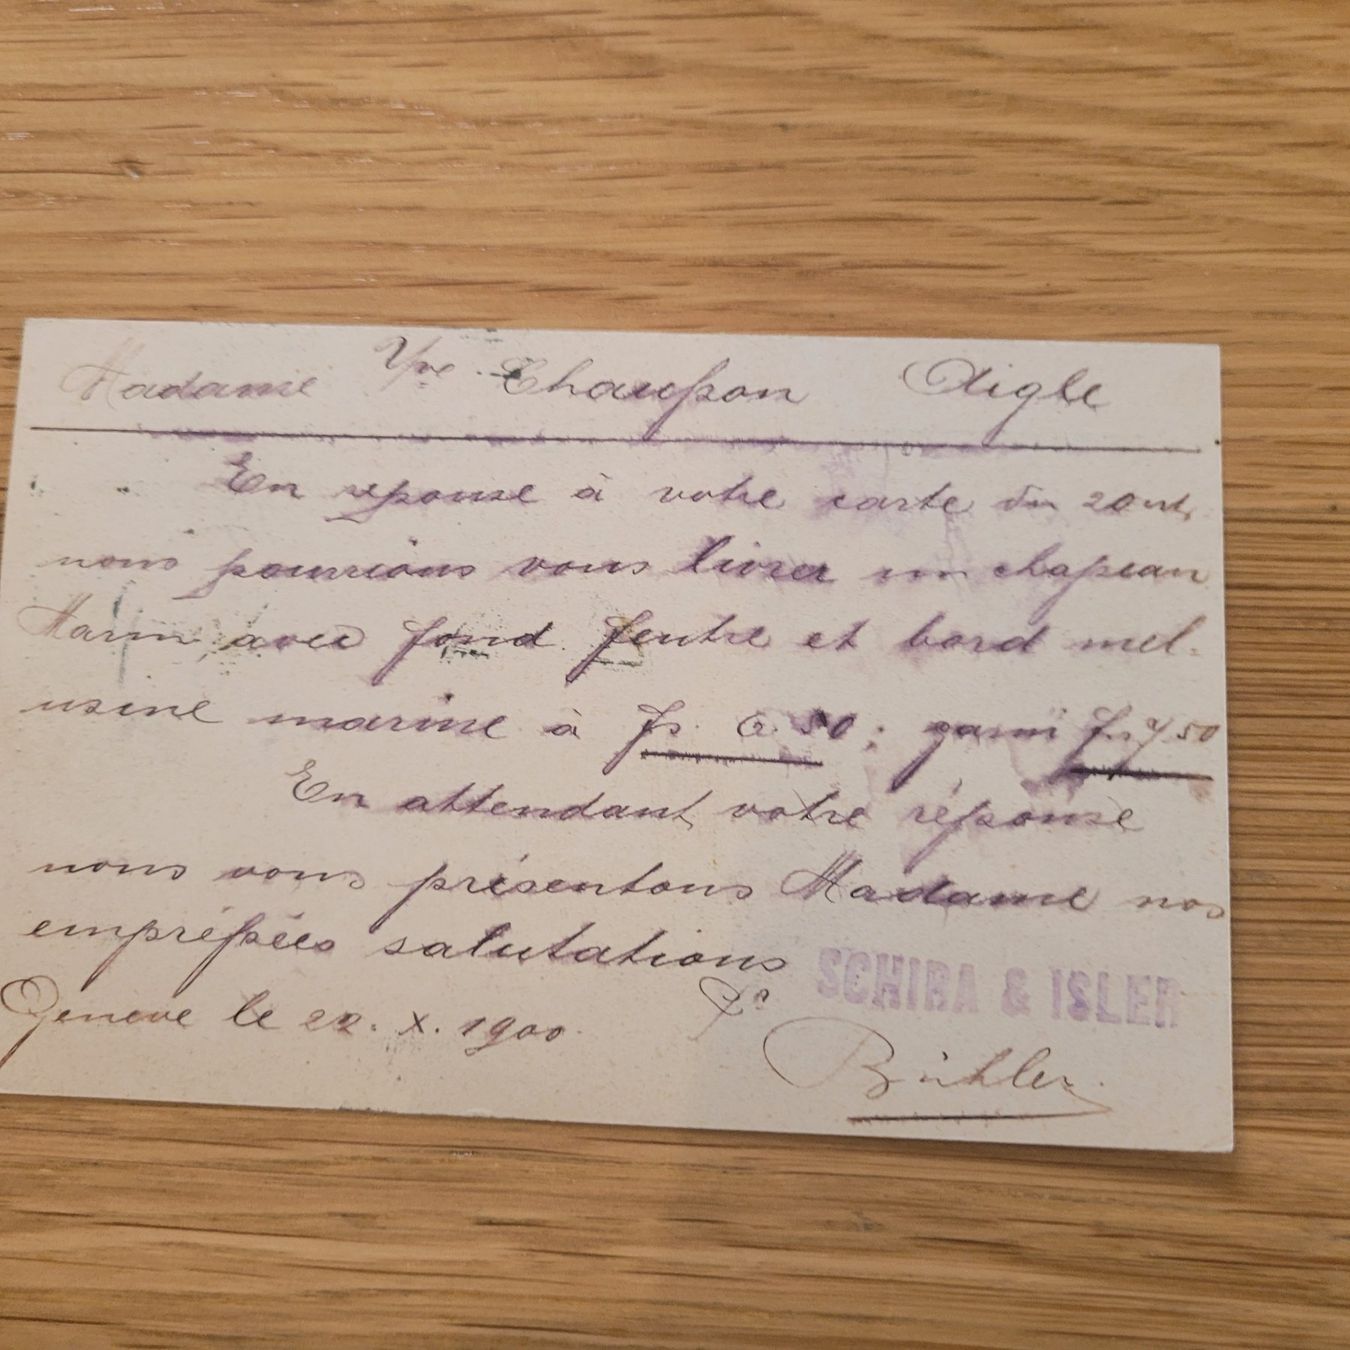 Madame Vve Chausson Aigle
En reponse à votre carte du 20 crt,
nous pourrions vous livrer un chapeau
Marin avec fond feutre et bord mel-
usine marine à frs. 6.50; garni frs 7.50
En attendant votre réponse
nous vous présentons Madame nos
empréssées salutations
Genève le 22. X. 1900.
SCHIRA & ISLER
Bühler